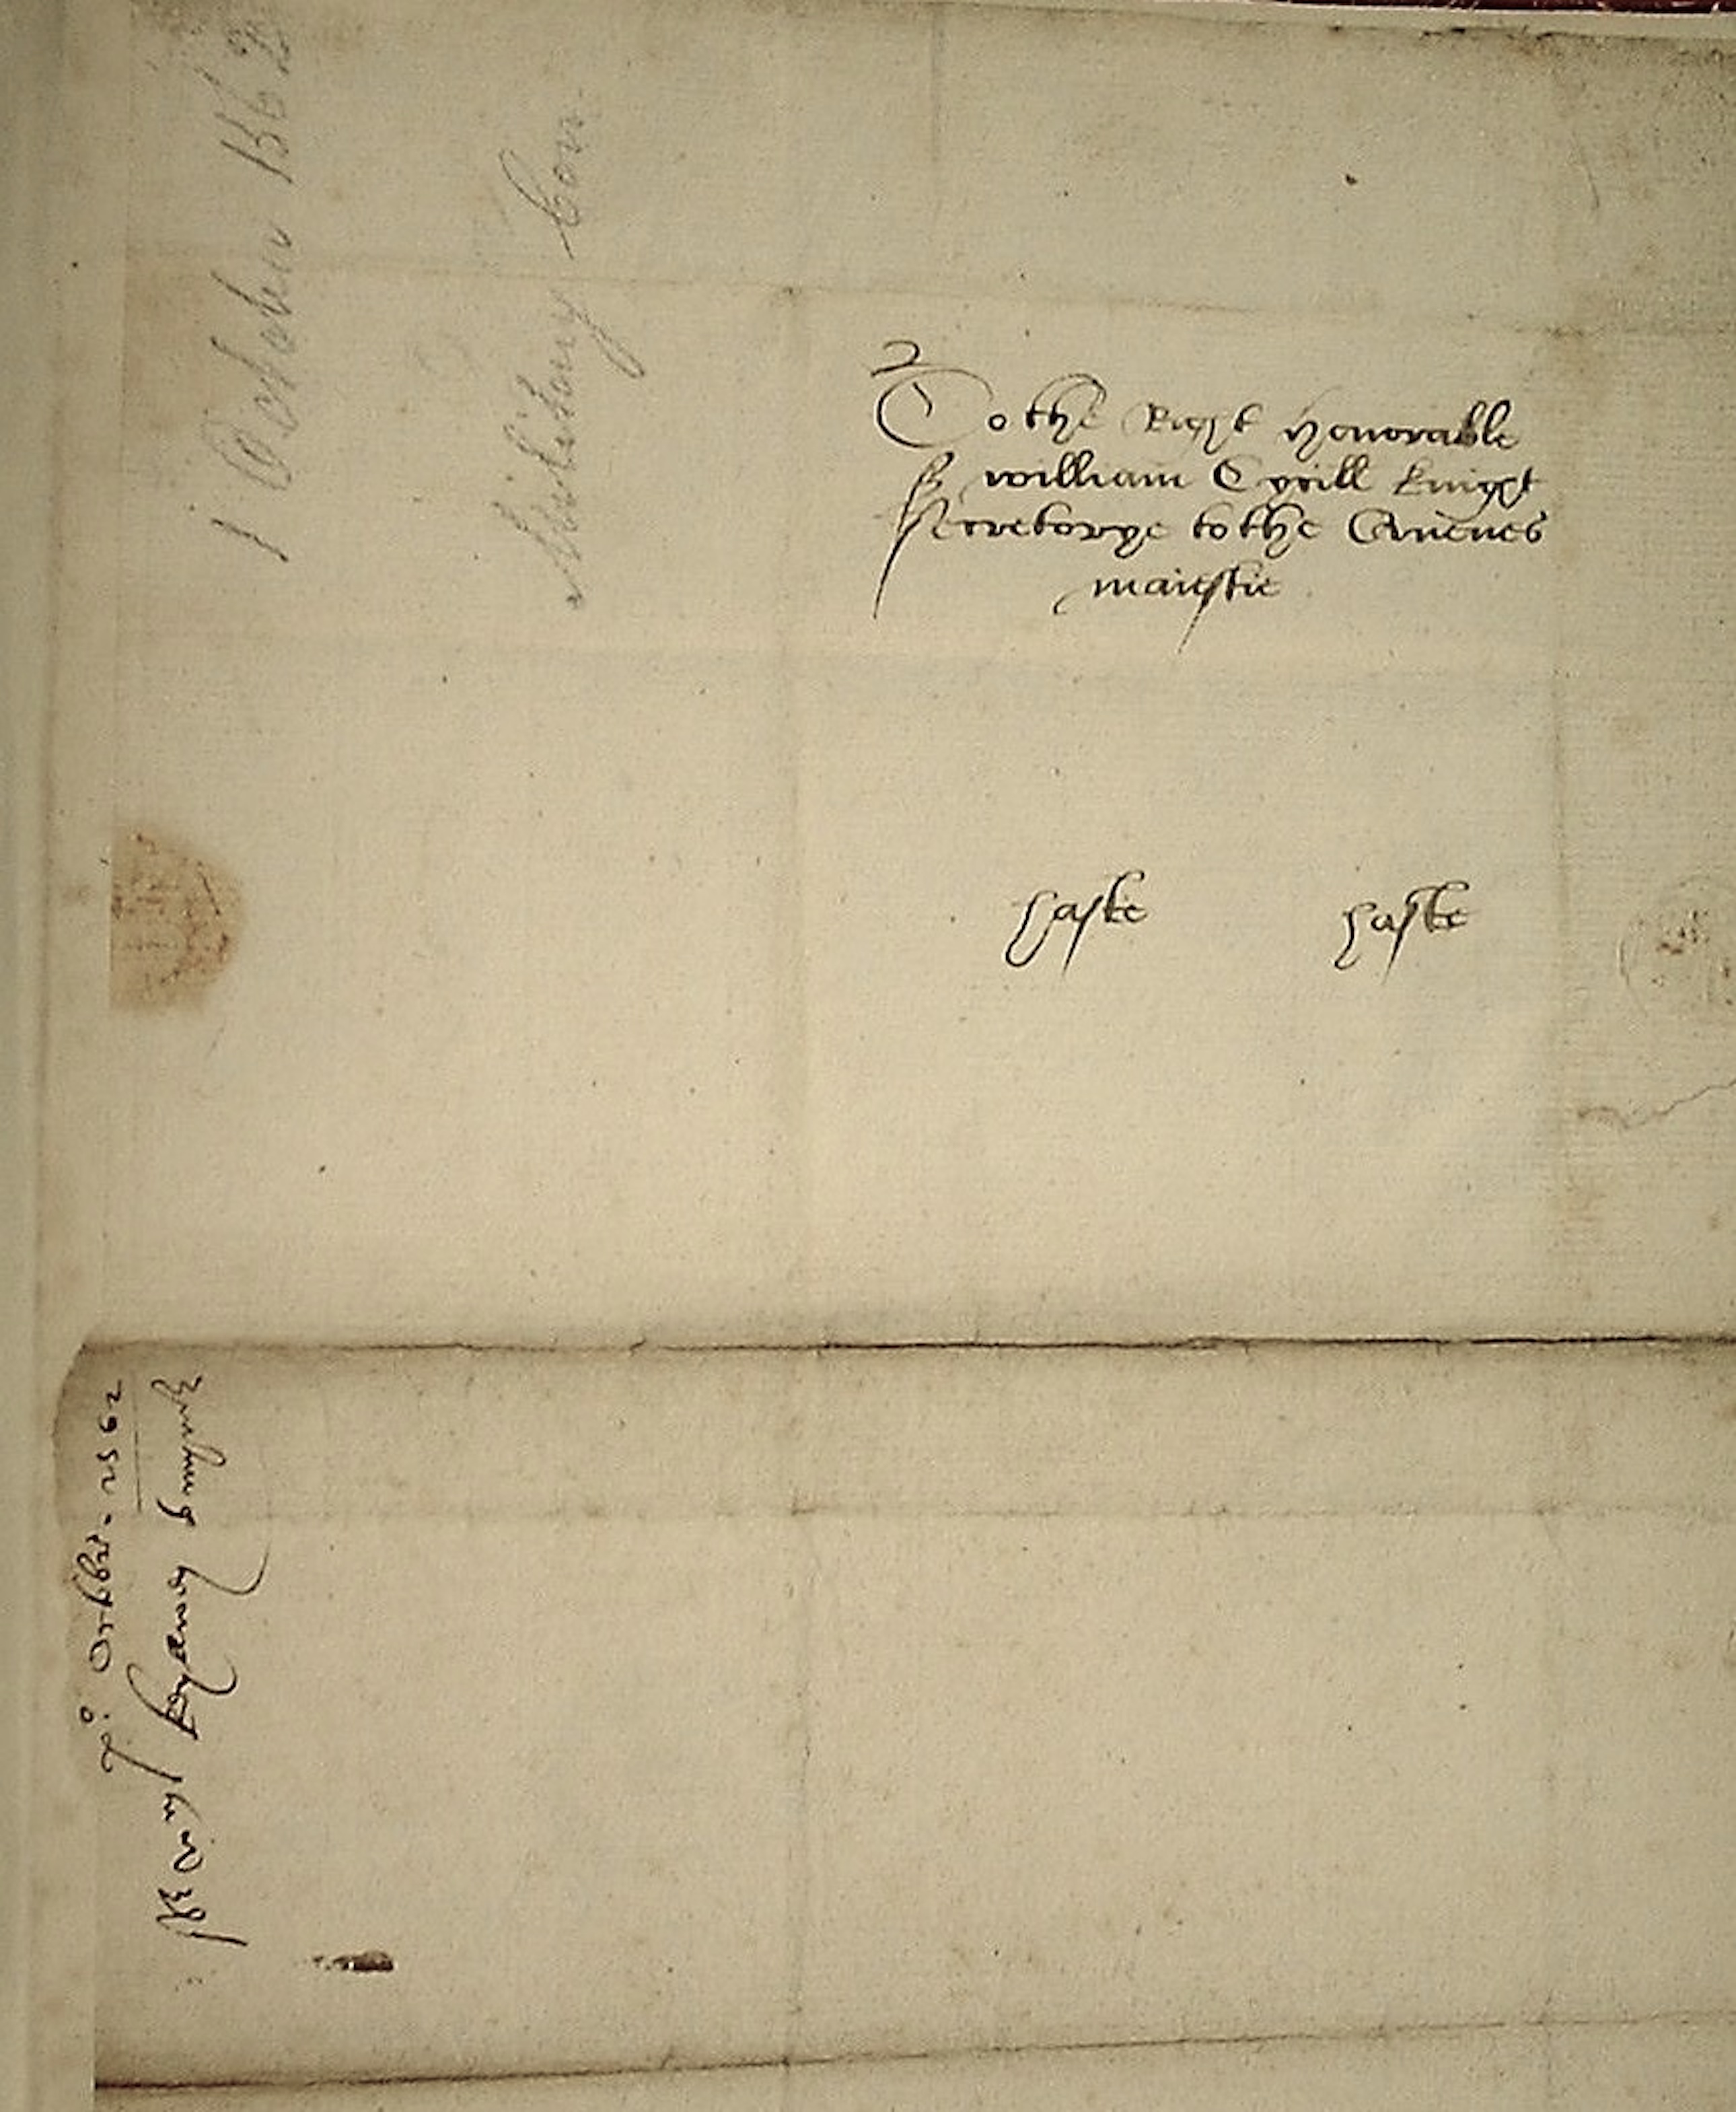 To the Right honorable
Sr william Cycill knight
secretorye to the Quenes
maiestie
haste haste
1 October 1562
Military Corr.
po Octobr. 1562